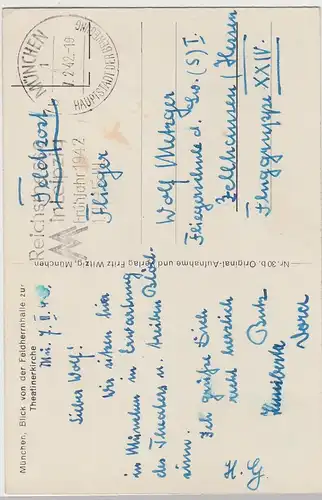 München, Blick von der Feldherrnhalle zur
Theatinerkirche
Mü. 7. II. 42.
Lieber Wolf!
Wir sitzen hier
in München in Erwartung
des Theaters u. treiben Blöd-
sinn.
Ich grüße Dich
recht herzlich
H. H.
Butz
Nr. 30 b. Original-Aufnahme und Verlag Fritz Witzig, München
MÜNCHEN
1
7.2.42.-19
HAUPTSTADT DER BEWEGUNG
Reichs
in Leipzig
Frühjahr 1942
Feldpost
Flieger
Wolf Metzger
Fliegerschule d. Lw. (S) I.
Zellhausen / Hessen
Fluggruppe XXIV.